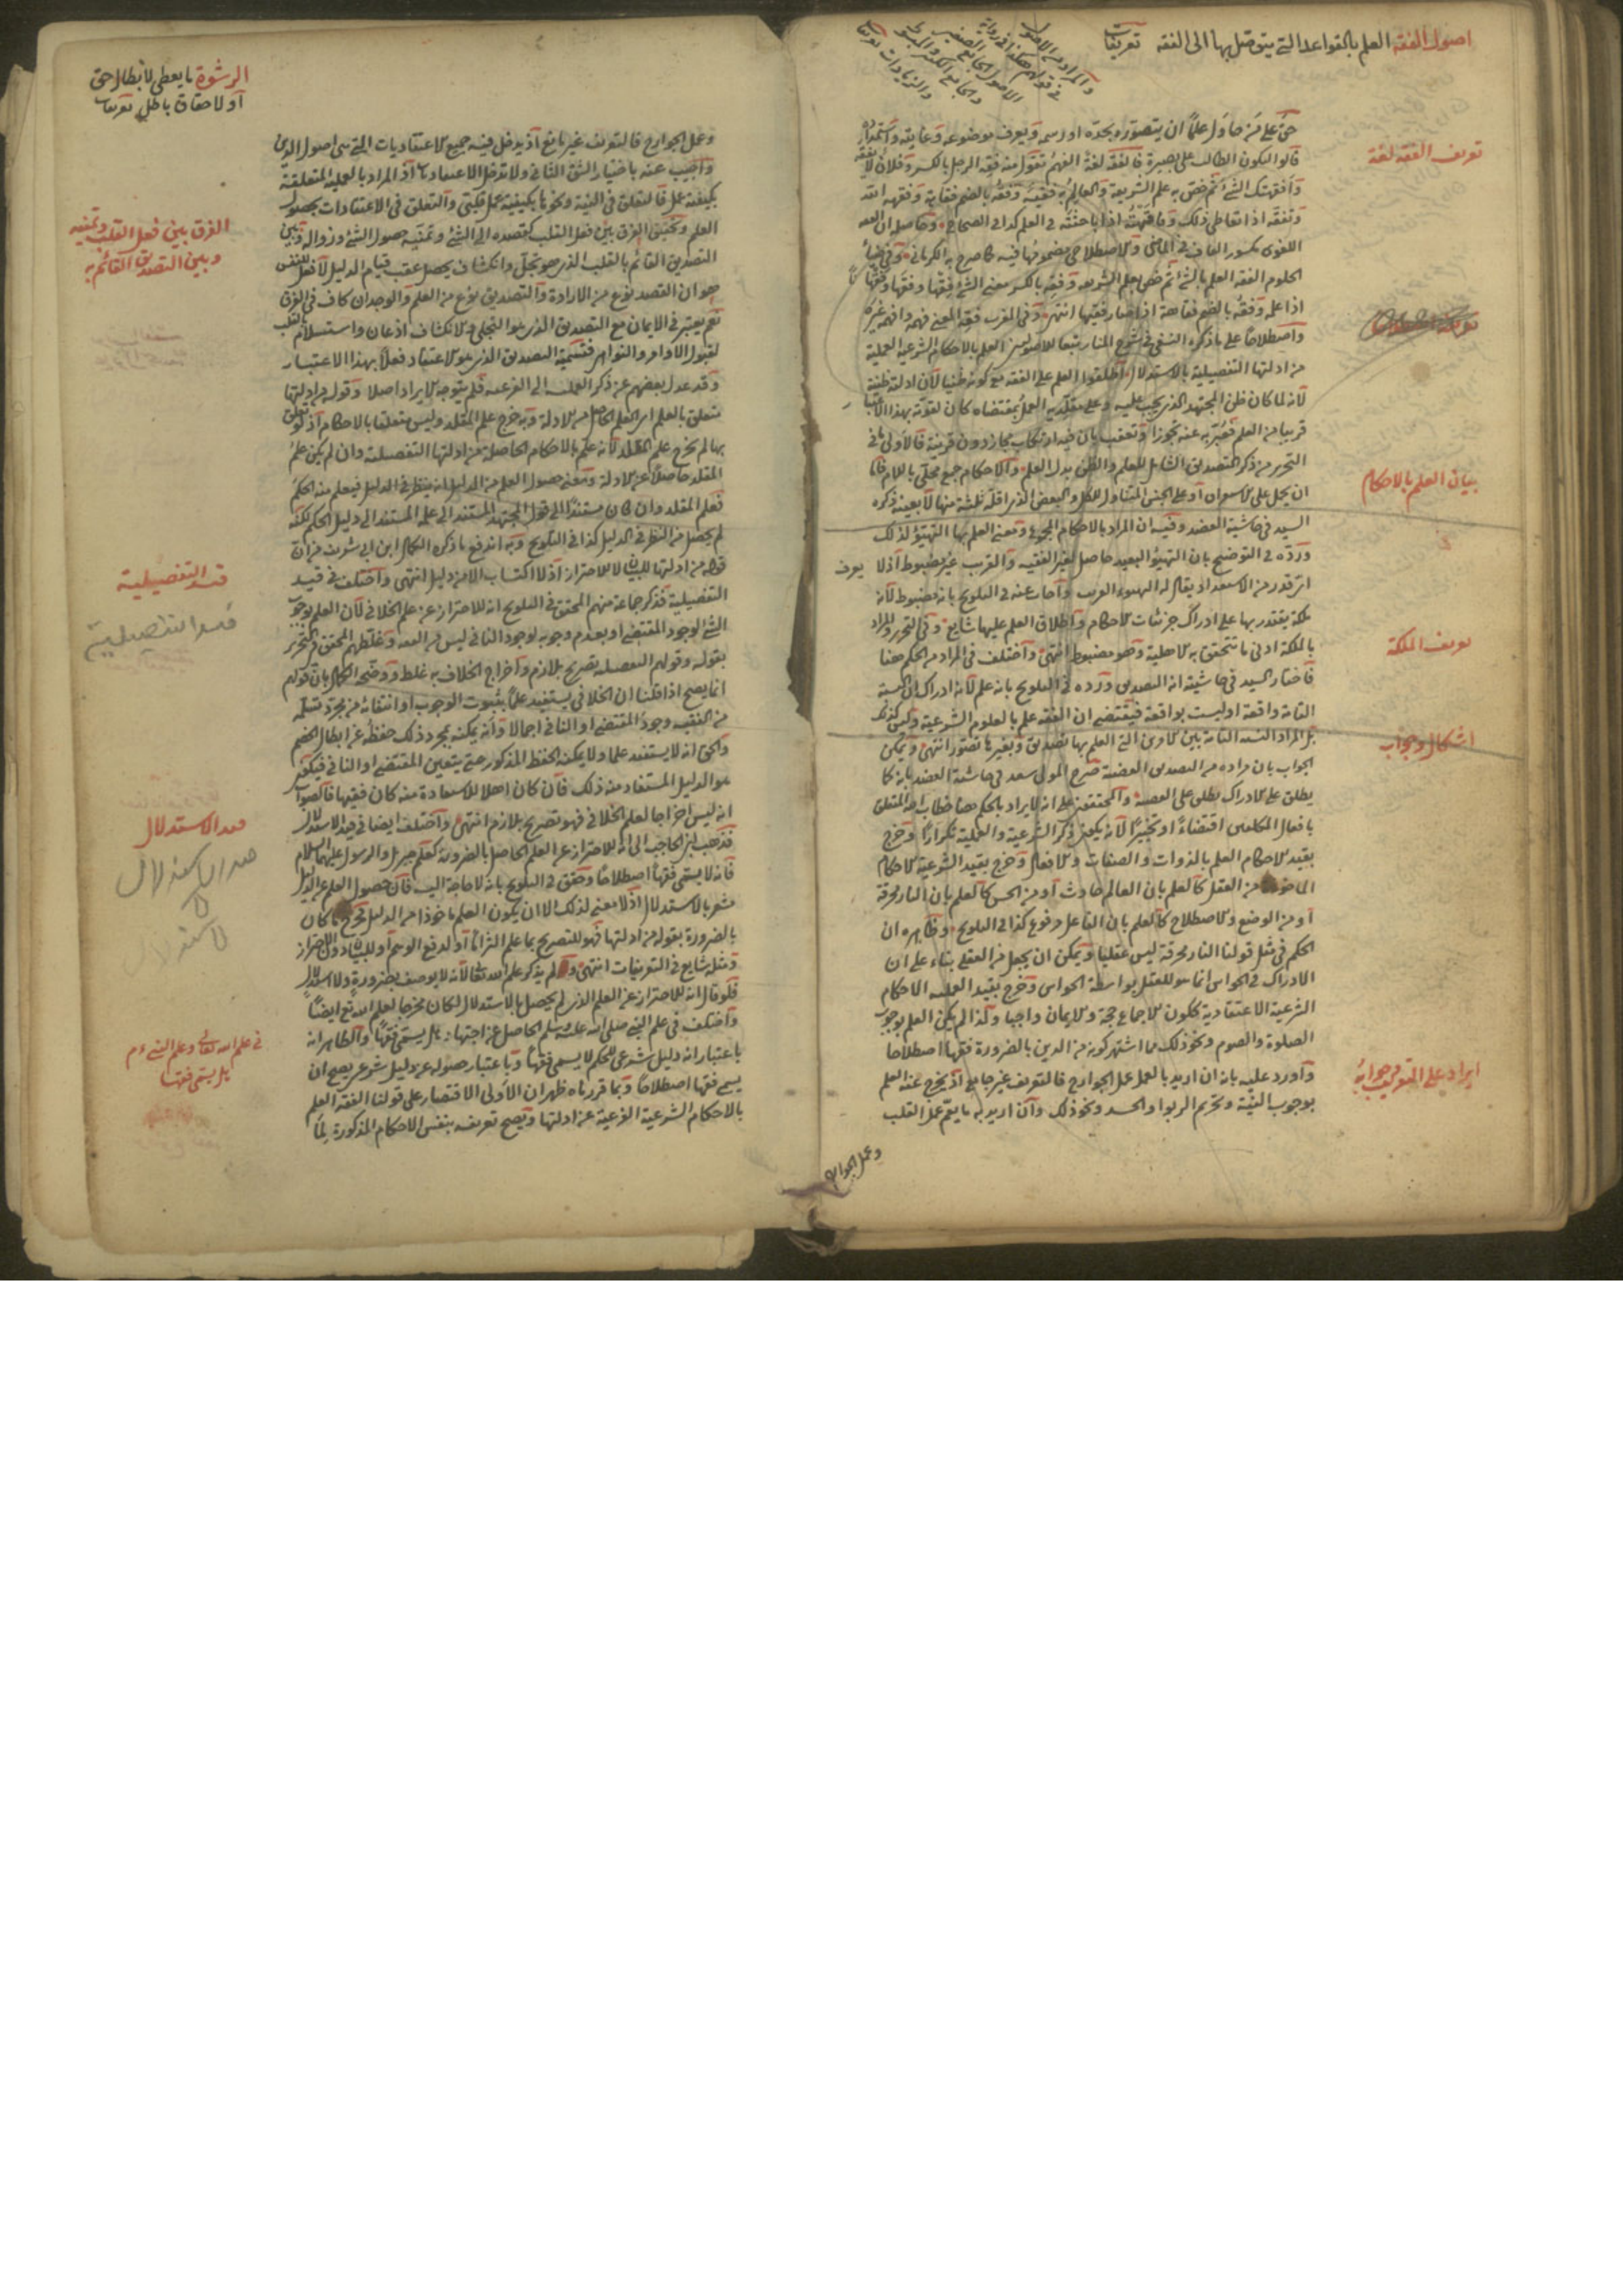 اصول الفقه العلم بالقواعد التي يتوصل بها الى الفقه تعريفات
حق على من حاول علما ان يتصوره بحده او رسمه ويعرف موضوعه وغايته واستمداده
قالوا ليكون الطالب على بصيرة فالفقه لغة الفهم تقول منه فقه الرجل بالكسر وفلان لا يفقه
وافقهتك الشئ ثم خص به علم الشريعة والعالم به فقيه وفقه بالضم فقاهة وفقهه الله
وتفقه اذا تعاطى ذلك وفاقهته اذا باحثته في العلم كذا في الصحاح وحاصله ان الفقه
اللغوى مكسور القاف في الماضى والاصطلاحى مضمومها فيه كما صرح به الكرمانى وفي ضياء
الحلوم الفقه العلم بالشئ ثم خص بعلم الشريعة وفقه بالكسر معنى الشئ فقها وفقها وفقها
اذا علم وفقه بالضم فقاهة اذا صار فقيها انتهى وفي المغرب فقه المعنى فهمه وافهمه غيره
واصطلاحا على ما ذكره النسفى في شرح المنار تبعا للاصوليين العلم بالاحكام الشرعية العملية
من ادلتها التفصيلية بالاستدلال اطلقوا العلم على الفقه مع كونه ظنيا لان ادلته ظنية
لانه لما كان ظن المجتهد الذى يجب عليه وعلى مقلديه العمل بمقتضاه كان لقوته بهذا الاعتبار
قريبا من العلم فعبر به عنه تجوزا وتعقب بان فيه ارتكاب مجاز دون قرينة فالاولى ما في
التحرير من ذكر التصديق الشامل للعلم والظن بدل العلم والاحكام جمع محلى باللام فاما
ان يحمل على الاستغراق او على الجنس المتناول للكل والبعض الذى اقله ثلثة منها لا بعينه ذكره
السيد في حاشية العضد وفيه ان المراد بالاحكام المجموع ومعنى العلم بها التهيؤ لذلك
ورده في التوضيح بان التهيؤ البعيد حاصل لغير الفقيه والقريب غير مضبوط اذ لا يعرف
اى قدر من الاستعداد يقال له التهيوء القريب واجاب عنه في التلويح بانه مضبوط لانه
ملكة يقتدر بها على ادراك جزئيات الاحكام واطلاق العلم عليها شايع وفي التحرير والمراد
بالملكة ادنى ما تتحقق به الاهلية وهو مضبوط انتهى واختلف في المراد من الحكم هنا
فاختار السيد في حاشيته انه التصديق ورده في التلويح بانه علم لانه ادراك ان النسبة
التامة واقعة او ليست بواقعة فيقتضى ان الفقه علم بالعلوم الشرعية وليس كذلك
بل المراد النسبة التامة بين الامرين التى العلم بها تصديق وبغيرها تصور انتهى ويمكن
الجواب بان مراده من التصديق القضية صرح المولى سعد في حاشية العضد بانه كما
يطلق على الادراك يطلق على القضية والمحققون على انه لا يراد بالحكم هنا خطاب الله المتعلق
بافعال المكلفين اقتضاء او تخييرا لانه يكون ذكر الشرعية والعملية تكرارا وخرج
بقيد الاحكام العلم بالذوات والصفات والافعال وخرج بقيد الشرعية الاحكام
الماخوذة من العقل كالعلم بان العالم حادث او من الحس كالعلم بان النار محرقة
او من الوضع والاصطلاح كالعلم بان الفاعل مرفوع كذا في التلويح وظاهره ان
الحكم في مثل قولنا النار محرقة ليس عقليا ويمكن ان يجعل من العقلى بناء على ان
الادراك في الحواس انما هو للعقل بواسطة الحواس وخرج بقيد العملية الاحكام
الشرعية الاعتقادية ككون الاجماع حجة والايمان واجبا ولذا لم يكن العلم بوجوب
الصلوة والصوم ونحو ذلك مما اشتهر كونه من الدين بالضرورة فقها اصطلاحا
واورد عليه بانه ان اريد بالعمل عمل الجوارح فالتعريف غير جامع اذ يخرج عنه العلم
بوجوب النية وتحريم الربوا والحسد ونحو ذلك وان اريد به ما يعم عمل القلب
وعمل الجوارح
تعريف الفقه لغة
بيان العلم بالاحكام
تعريف الملكة
اشكال وجواب
ايراد على التعريف وجوابه
الرشوة ما يعطى لابطال حق
او لاحقاق باطل تعريفات
وعمل الجوارح فالتعريف غير مانع اذ يدخل فيه جميع الاعتقاديات التى هى اصول الدين
واجيب عنه باختيار الشق الثانى ولا تدخل الاعتقاديات اذ المراد بالعملية المتعلقة
بكيفية عمل فالتعلق في النية ونحوها بكيفية عمل قلبى والتعلق في الاعتقادات بحصول
العلم وتحقيق الفرق بين فعل القلب كقصده الى الشئ وتمنيه حصول الشئ وزواله وبين
التصديق القائم بالقلب الذى هو تجل وانكشاف يحصل عقب قيام الدليل لا فعل للنفس
هو ان القصد نوع من الارادة والتصديق نوع من العلم والوجدان كاف في الفرق
نعم يعتبر في الايمان مع التصديق الذى هو التجلى والانكشاف اذعان واستسلام بالقلب
لقبول الاوامر والنواهى فتسمية التصديق الذى هو الاعتقاد فعلا بهذا الاعتبار
وقد عدل بعضهم عن ذكر العملية الى الفرعية فلم يتوجه الايراد اصلا وقوله من ادلتها
متعلق بالعلم اى العلم الحاصل من الادلة وبه خرج علم المقلد وليس متعلقا بالاحكام اذ لو تعلق
بها لم يخرج علم المقلد لانه علم بالاحكام الحاصلة عن ادلتها التفصيلية وان لم يكن علم
المقلد حاصلا عن الادلة ومعنى حصول العلم من الدليل انه ينظر في الدليل فيعلم منه الحكم
فعلم المقلد وان كان مستندا الى قول المجتهد المستند الى علمه المستند الى دليل الحكم لكنه
لم يحصل من النظر في الدليل كذا في التلويح وبه اندفع ما ذكره الكمال ابن ابى شريف من ان
قوله من ادلتها للبيان لا للاحتراز اذ لا اكتساب الا من دليل انتهى واختلف في قيد
التفصيلية فذكر جماعة منهم المحقق في التلويح انه للاحتراز عن علم الخلافى لان العلم بوجوب
الشئ لوجود المقتضى او بعدم وجوبه لوجود النافى ليس من الفقه وغلطهم المحقق في التحرير
بقوله وقولهم التفصيلية تصريح بلازم واخراج الخلاف به غلط ووضحه الكمال بان قولهم
انما يصح اذا قلنا ان الخلافى يستفيد علما بثبوت الوجوب او انتفائه من مجرد تسلمه
من الفقيه وجود المقتضى او النافى اجمالا وانه يمكنه بمجرد ذلك حفظه عن ابطال الخصم
والحق انه لا يستفيد علما ولا يمكنه الحفظ المذكور حتى يتعين المقتضى او النافى فيكون
هو الدليل المستفاد منه ذلك فان كان اهلا للاستفادة منه كان فقيها فالصواب
انه ليس اخراجا لعلم الخلافى فهو تصريح بلازم انتهى واختلف ايضا في قيد الاستدلال
فذهب ابن الحاجب الى انه للاحتراز عن العلم الحاصل بالضرورة كعلم جبريل والرسول عليهما السلام
فانه لا يسمى فقها اصطلاحا وحقق في التلويح بانه لا حاجة اليه فان حصول العلم عن الدليل
مشعر بالاستدلال اذ لا معنى لذلك الا ان يكون العلم ماخوذا من الدليل فخرج ما كان
بالضرورة بقوله من ادلتها فهو للتصريح بما علم التزاما او لدفع الوهم او للبيان دون الاحتراز
ومثله شايع في التعريفات انتهى ولم يذكر علم الله تعالى لانه لا يوصف بضرورة ولا استدلال
فلو قال انه للاحتراز عن العلم الذى لم يحصل بالاستدلال لكان مخرجا لعلم الله تع ايضا
واختلف في علم النبى صلى الله عليه وسلم الحاصل عن اجتهاد هل يسمى فقها والظاهر انه
باعتبار انه دليل شرعى للحكم لا يسمى فقها وباعتبار حصوله عن دليل شرعى يصح ان
يسمى فقها اصطلاحا وبما قررناه ظهر ان الاولى الاقتصار على قولنا الفقه العلم
بالاحكام الشرعية الفرعية عن ادلتها ويصح تعريفه بنفس الاحكام المذكورة لما
الفرق بين فعل القلب وتمنيه
وبين التصديق القائم به
قيد التفصيلية
قيد التفصيلية
قيد الاستدلال
قيد الاستدلال
في علم الله تعالى وعلم النبى عم
هل يسمى فقها